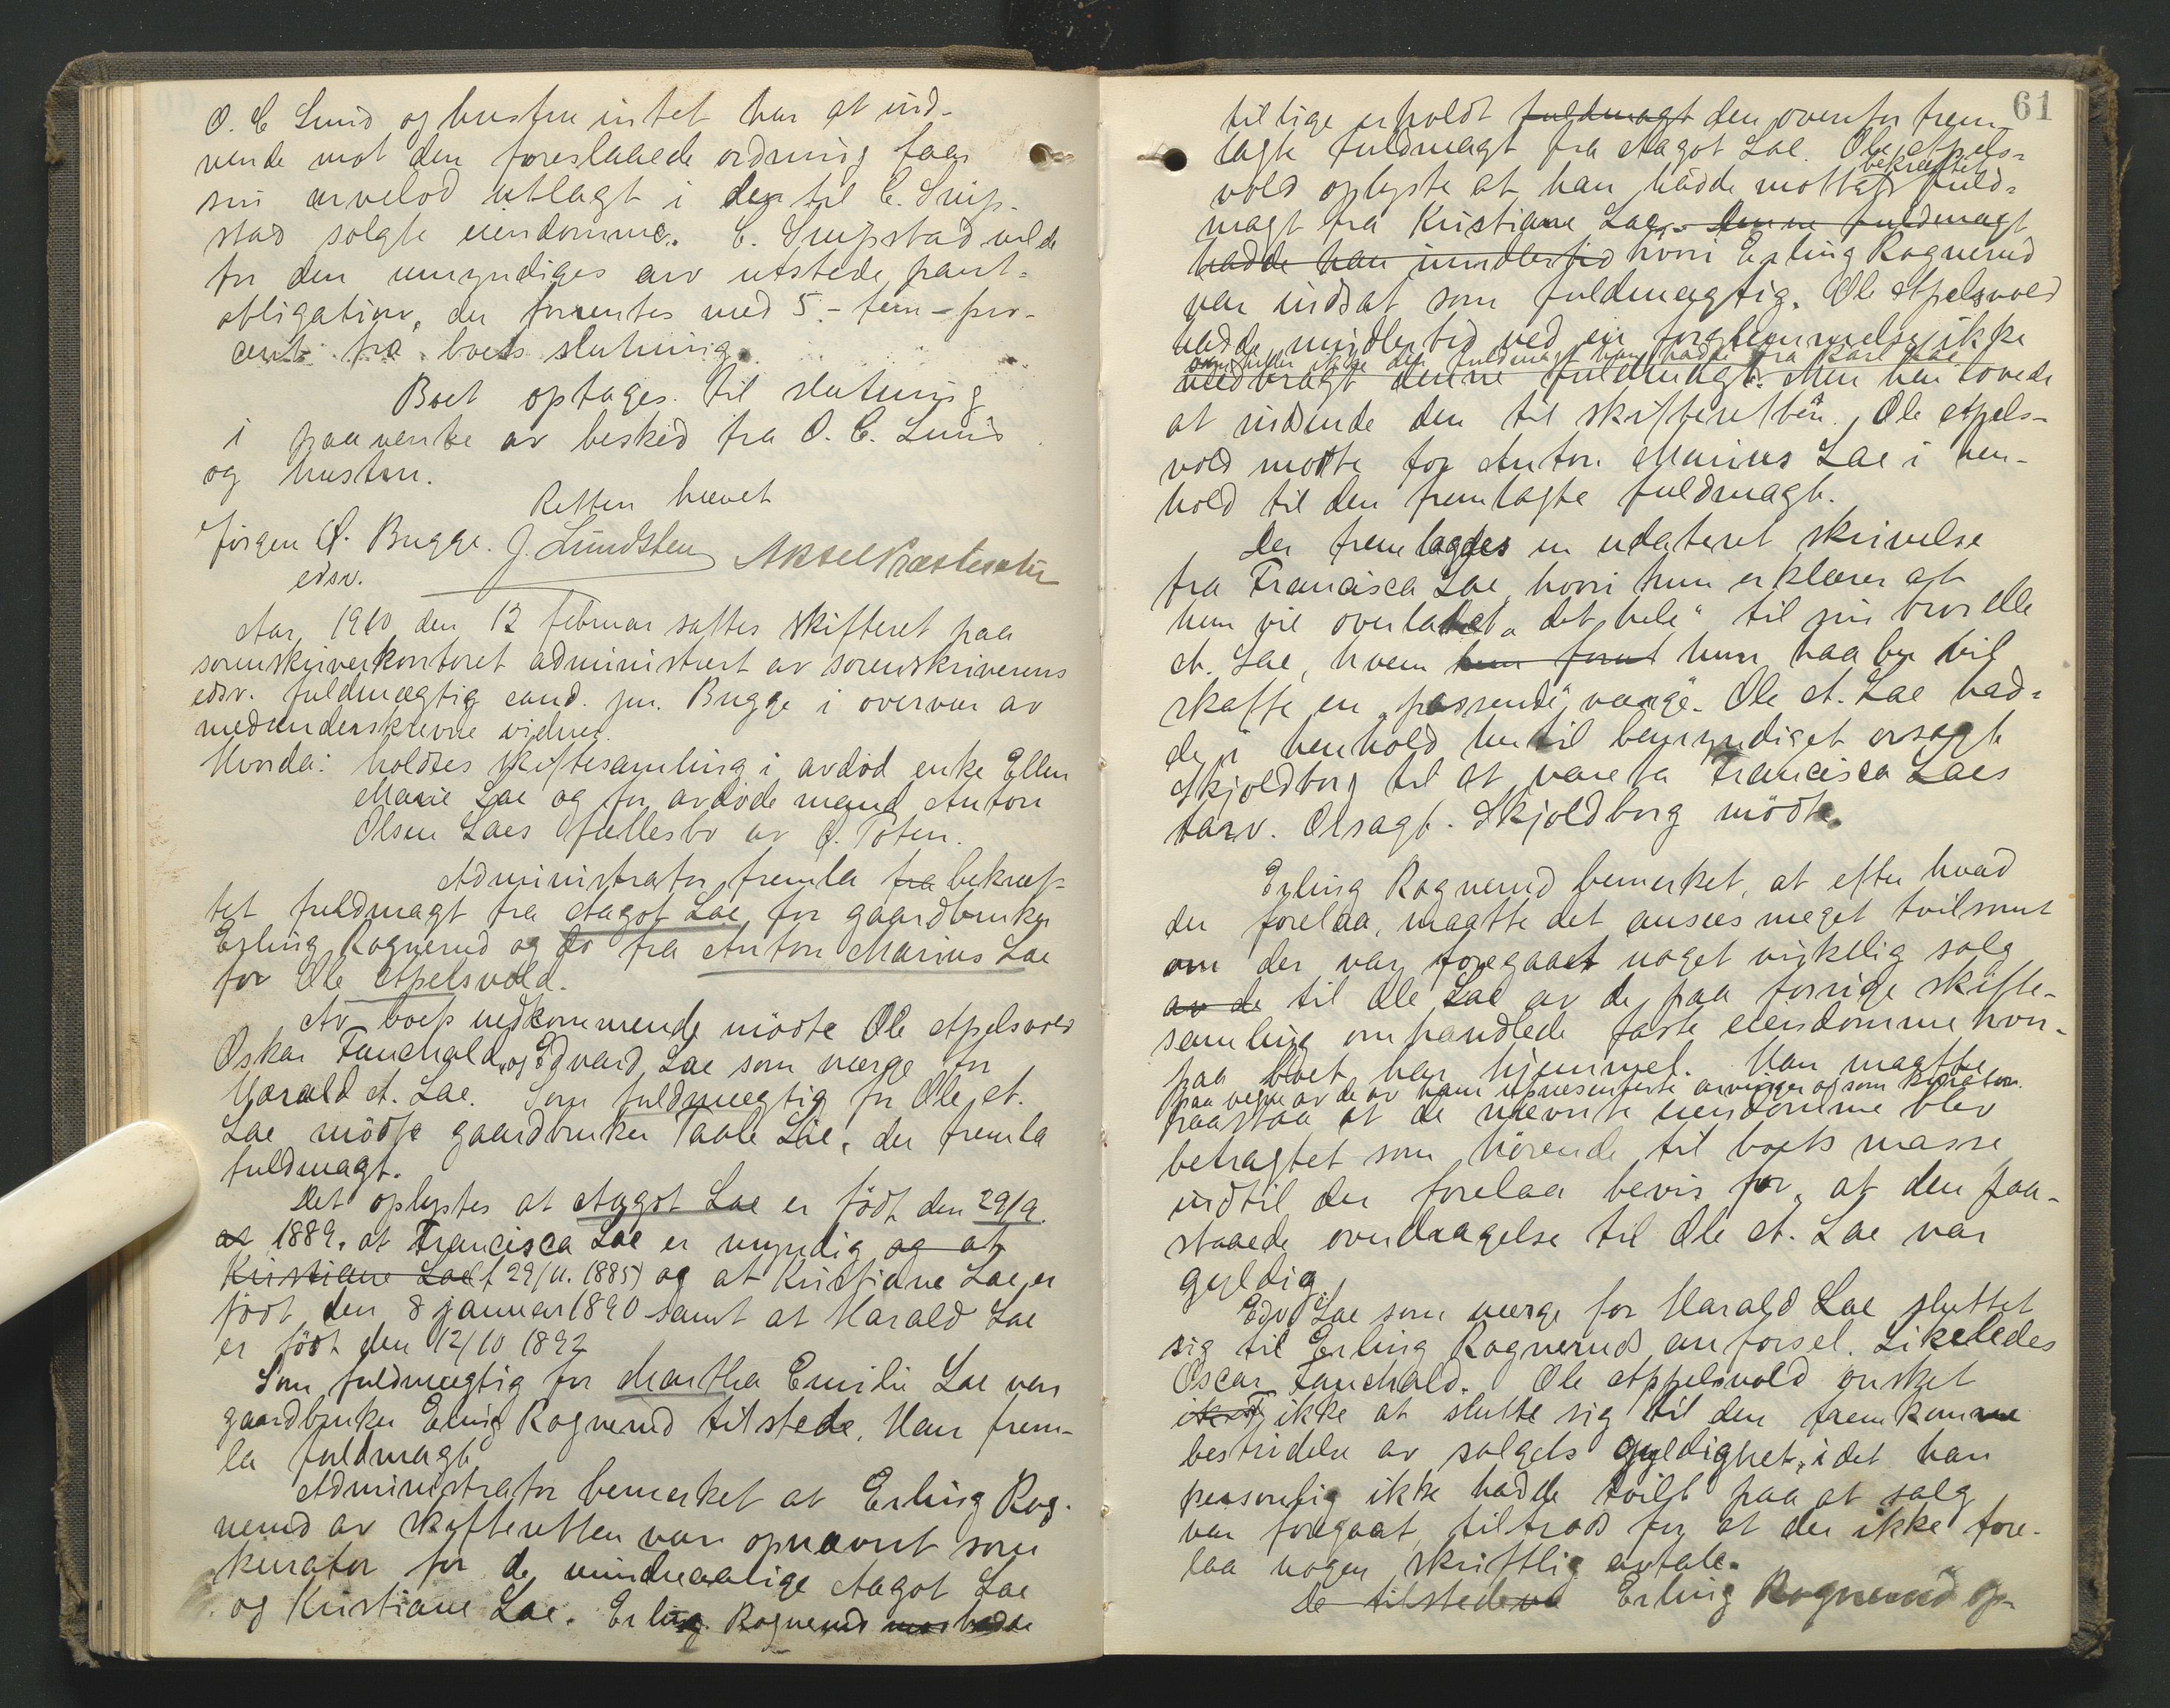 O. C. Lund og hustru intet har at ind-
vende mot den foreslaaede ordning faar
sin arvelod utlagt i de til C. Snip-
stad solgte eiendomme. C. Snipstad vilde
for den umyndiges arv utstede pant-
obligation, der forrentes med 5 - fem - pro-
cent fra boets slutning.
Boet optages til slutning
i paavente av besked fra O. C. Lund
og hustru.
Retten hævet
Jørgen Bugge. J. Lundsten Aksel Præstesæter
edsv.
Aar 1910 den 12 februar sattes skifteret paa
sorenskriverkontoret administrert av sorenskriverens
edsv. fuldmægtig cand. jur. Bugge i overvær av
medunderskrevne vidner.
Hvorda: holdtes skiftesamling i avdød enke Ellen
Marie Lae og før avdøde mand Anton
Olsen Laes fællesbo av Ø. Toten.
Administrator fremla fra bekræf-
tet fuldmagt fra Aagot Lae for gaardbruker
Erling Rognerud og do fra Anton Marius Lae
for Ole Apelsvold.
Av boets vedkommende mødte Ole Apelsvold
Oskar Fauchald, og Edvard Lae som værge for
Harald A. Lae. Som fuldmægtig for Ole A.
Lae mødte gaardbruker Paale Lae, der fremla
fuldmagt.
Det oplystes at Aagot Lae er født den 29/9
at 1889, at Francisca Lae er myndig og at
Kristiane Lae (f 29/11. 1885) og at Kristiane Lae er
født den 8 januar 1890 samt at Harald Lae
er født den 12/10 1892
Som fuldmægtig for Martha Emilie Lae var
gaardbruker Erling Rognerud tilstede. Han frem-
la fuldmagt.
Administrator bemerket at Erling Rog-
nerud av skifteretten var opnævnt som
kurator for de mindreaarige Aagot Lae
og Kristiane Lae. Erling Rognerud hadde
61
tillige erholdt fuldmagt den ovenfor frem-
lagte fuldmagt fra Aagot Lae. Ole Apels-
bekræftet
vold oplyste at han hadde mottat fuld-
magt fra Kristiane Lae, denne fuldmagt
hadde han imidlertid hvori Erling Rognerud
var indsat som fuldmægtig. Ole Apelsvold
hadde imidlertid ved en forglemmelse ikke
som heller ikke den fuldmagt han hadde fra Karl Lae
medbragt denne fuldmagt. Men han lovede
at indsende den til skifteretten. Ole Apels-
vold møtte for Anton Marius Lae i hen-
hold til den fremlagte fuldmagt.
Der fremlagdes en udateret skrivelse
fra Francisca Lae, hvori hun erklærer at
hun vil overlate "det hele" til sin bror Ole
A. Lae, hvem hun forut hun haaber vil
skaffe en "passende" værge. Ole A. Lae had-
de i henhold hertil bemyndiget orsagf.
Skjoldborg til at vareta Francisca Laes
tarv. Orsagf. Skjoldborg mødte.
Erling Rognerud bemerket, at efter hvad
der forelaa, maatte det ansees meget tvilsomt
om der var foregaaet noget virkelig salg
av de til Ole Lae av de paa forrige skifte-
samling omhandlede faste eiendomme hvor-
paa boet har hjemmel. Han maatte
paa vegne av de av ham representerte arvinger og som kurator
paastaa at de nævnte eiendomme blev
betragtet som hørende til boets masse
indtil der forelaa bevis for, at den paa-
staaede overdragelse til Ole A. Lae var
gyldig.
Edv. Lae som værge for Harald Lae sluttet
sig til Erling Rogneruds anførsel. Likeledes
Oscar Fauchald. Ole Appelsvold ønsket
ikke at slutte sig til den fremkomne
bestridelse av salgets gyldighet, idet han
personlig ikke hadde tvilt paa at salg
var foregaat, tiltrods for at der ikke fore-
laa nogen skriftlig avtale.
De tilstedeva Erling Rognerud op-